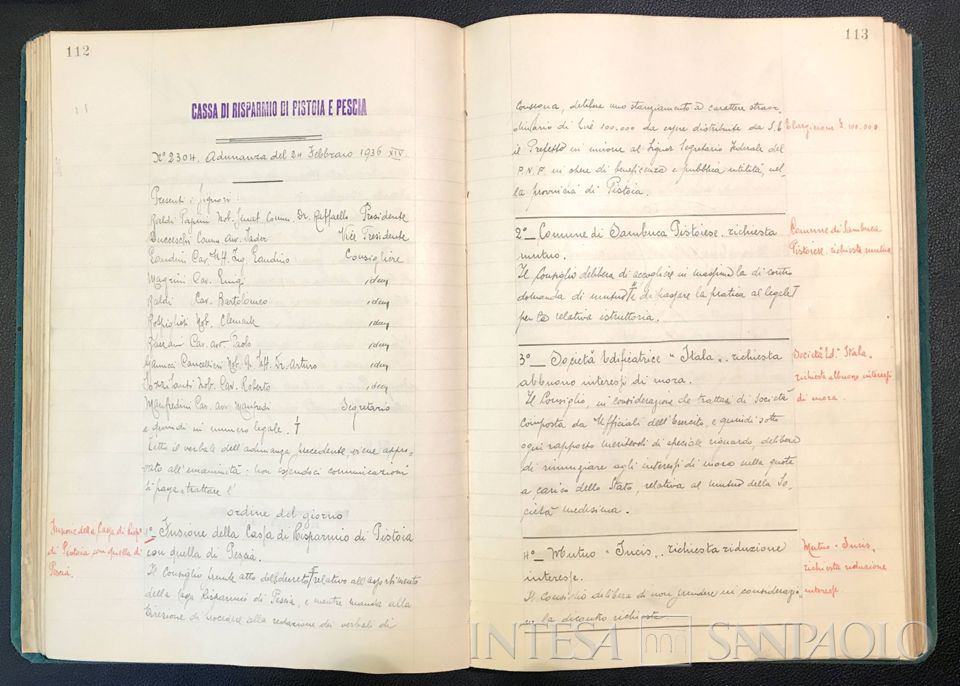 112
CASSA DI RISPARMIO DI PISTOIA E PESCIA
N° 2304. Adunanza del 24 Febbraio 1936 XIV.
Presenti i Signori:
Baldi Papini Nob. Senat. Comm. Dr. Raffaello Presidente
Bucceschi Comm. Avv. Jader Vice Presidente
Cav. Uff. Ing. Consigliere
Magrini Cav. Luigi idem
Baldi Cav. Bartolomeo idem
Rospigliosi Nob. Clemente idem
Cav. avv. Paolo idem
Cancellieri Nob. Uff. Dr. Arturo idem
Nob. Cav. Roberto idem
Manfredini Cav. avv. Manfredi Segretario
e quindi in numero legale.
Letto il verbale dell'adunanza precedente viene appro-
vato all'unanimità. non essendoci comunicazioni
si passa a trattare l'
ordine del giorno
Fusione della Cassa di Risp.
di Pistoia con quella di
Pescia.
1° Fusione della Cassa di Risparmio di Pistoia
con quella di Pescia.
Il Consiglio prende atto del decreto relativo all'assorbimento
della Cassa Risparmio di Pescia, e mentre manda alla
Direzione di procedere alla redazione dei verbali di
113
consegna, delibera uno stanziamento a carattere straor
dinario di Lire 100.000 da essere distribuite da S.E.
il Prefetto in unione al Signor Segretario Federale del
P.N.F. in opere di beneficenza e pubblica utilità, nel-
la provincia di Pistoia.
Elargizione £. 100.000
2° Comune di Sambuca Pistoiese. richiesta
mutuo.
Il Consiglio delibera di accogliere in massima la di contro
domanda di mutuo e di passare la pratica al legale
per la relativa istruttoria.
Comune di Sambuca
Pistoiese. richiesta mutuo
3° Società Edificatrice "Itala". richiesta
abbuono interessi di mora.
Il Consiglio, in considerazione che trattasi di Società
composta da Ufficiali dell'Esercito, e quindi sotto
ogni rapporto meritevoli di speciale riguardo, delibera
di rinunziare agli interessi di mora sulla quota
a carico dello Stato, relativa al mutuo della So-
cietà medesima.
Società Ed. "Itala"
richiesta abbuono interessi
di mora.
4° Mutuo "Incis". richiesta riduzione
interesse.
Il Consiglio delibera di non prendere in considerazio
ne la discontro richiesta
Mutuo "Incis"
richiesta riduzione
interesse.
INTESA SANPAOLO